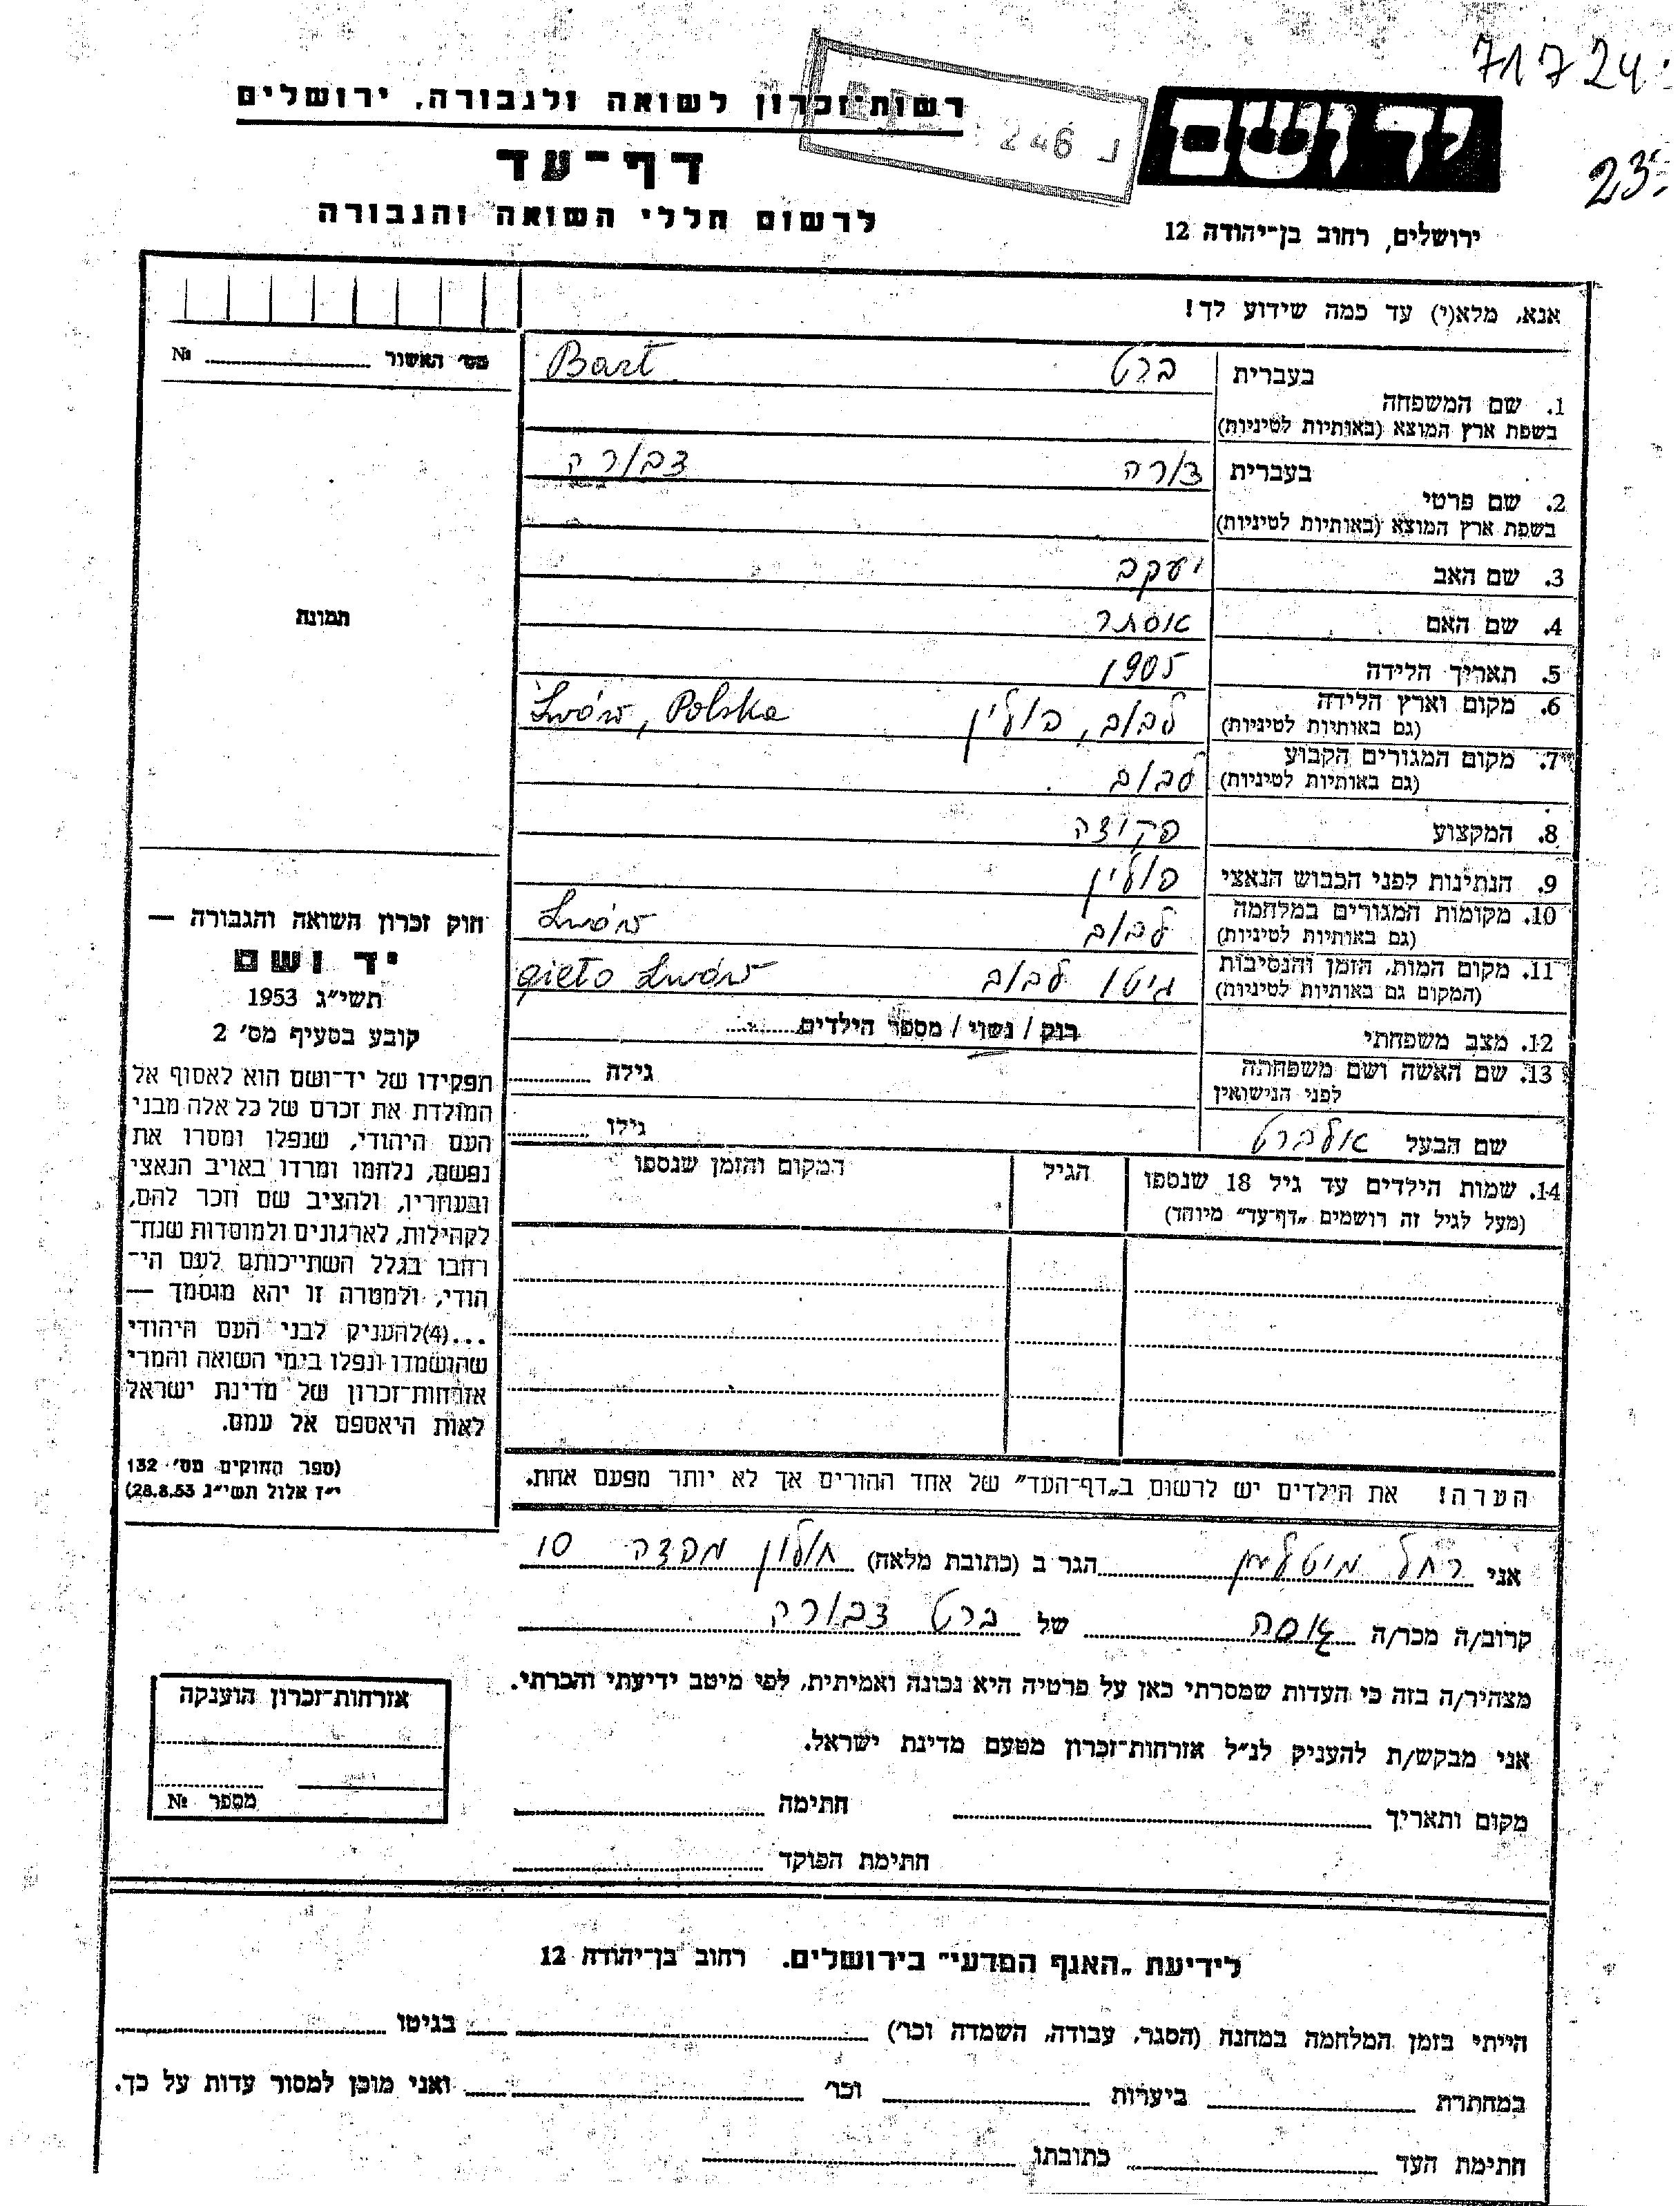 71724
23
יד ושם
246 ל
רשות־זכרון לשואה ולגבורה, ירושלים
דף־עד
לרשום חללי השואה והגבורה
ירושלים, רחוב בן־יהודה 12
אנא, מלא(י) עד כמה שידוע לך!
בעברית ברט Bart
1. שם המשפחה
בשפת ארץ המוצא (באותיות לטיניות)
בעברית צ/רה דבורה
2. שם פרטי
בשפת ארץ המוצא (באותיות לטיניות)
3. שם האב יעקב
4. שם האם אסתר
5. תאריך הלידה 1905
6. מקום וארץ הלידה לבוב, פולין Lwów, Polska
(גם באותיות לטיניות)
7. מקום המגורים הקבוע לבוב
(גם באותיות לטיניות)
8. המקצוע פקידה
9. הנתינות לפני הכבוש הנאצי פולין
10. מקומות המגורים במלחמה לבוב Lwów
(גם באותיות לטיניות)
11. מקום המות, הזמן והנסיבות גיטו לבוב gieto Lwów
(המקום גם באותיות לטיניות)
12. מצב משפחתי רוק / נשוי / מספר הילדים
13. שם האשה ושם משפחתה גילה
לפני הנישואין
שם הבעל אלברט גילו
14. שמות הילדים עד גיל 18 שנספו הגיל המקום והזמן שנספו
(מעל לגיל זה רושמים „דף־עד" מיוחד)
הערה! את הילדים יש לרשום ב„דף־העד" של אחד ההורים אך לא יותר מפעם אחת.
מס׳ האשור №
תמונה
חוק זכרון השואה והגבורה —
יד ושם
תשי"ג 1953
קובע בסעיף מס׳ 2
תפקידו של יד־ושם הוא לאסוף אל
המולדת את זכרם של כל אלה מבני
העם היהודי, שנפלו ומסרו את
נפשם, נלחמו ומרדו באויב הנאצי
ובעוזריו, ולהציב שם וזכר להם,
לקהילות, לארגונים ולמוסדות שנח־
רבו בגלל השתייכותם לעם הי־
הודי, ולמטרה זו יהא מוסמך —
...(4)להעניק לבני העם היהודי
שהושמדו ונפלו בימי השואה והמרי
אזרחות־זכרון של מדינת ישראל
לאות היאספם אל עמם.
(ספר החוקים מס׳ 132
י"ז אלול תשי"ג 28.8.53)
אני רחל הגר ב (כתובת מלאה) חולון מפדה 10
קרוב/ה מכר/ה של ברט דבורה
מצהיר/ה בזה כי העדות שמסרתי כאן על פרטיה היא נכונה ואמיתית, לפי מיטב ידיעתי והכרתי.
אני מבקש/ת להעניק לנ"ל אזרחות־זכרון מטעם מדינת ישראל.
מקום ותאריך חתימה
חתימת הפוקד
אזרחות־זכרון הוענקה
מספר №
לידיעת „האגף המדעי" בירושלים. רחוב בן־יהודה 12
הייתי בזמן המלחמה במחנה (הסגר, עבודה, השמדה וכו׳) בגיטו
במחתרת ביערות וכו׳ ואני מוכן למסור עדות על כך.
חתימת העד כתובתו